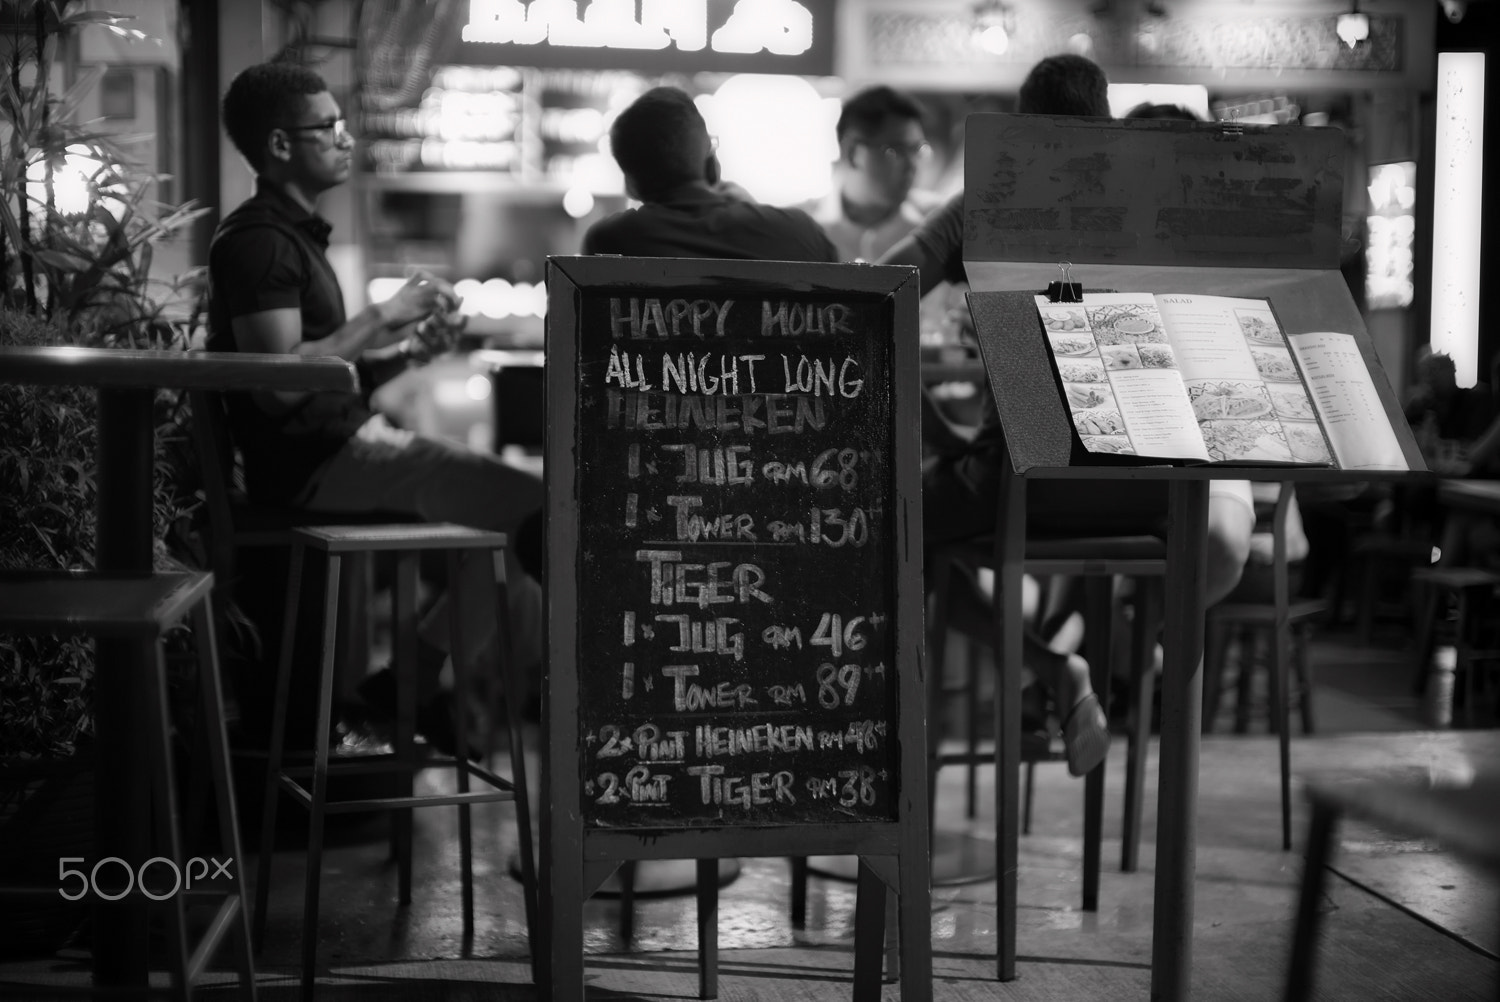 HAPPY HOUR
ALL NIGHT LONG
HEINEKEN
1x JUG RM 68++
1x TOWER RM 130++
TIGER
1x JUG RM 46++
1x TOWER RM 89++
+2x PINT HEINEKEN RM 48+
2x PINT TIGER RM 38+
SALAD
500px